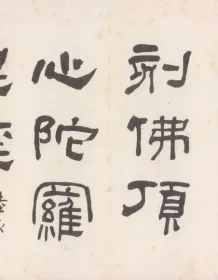 刻佛頂
心陀羅